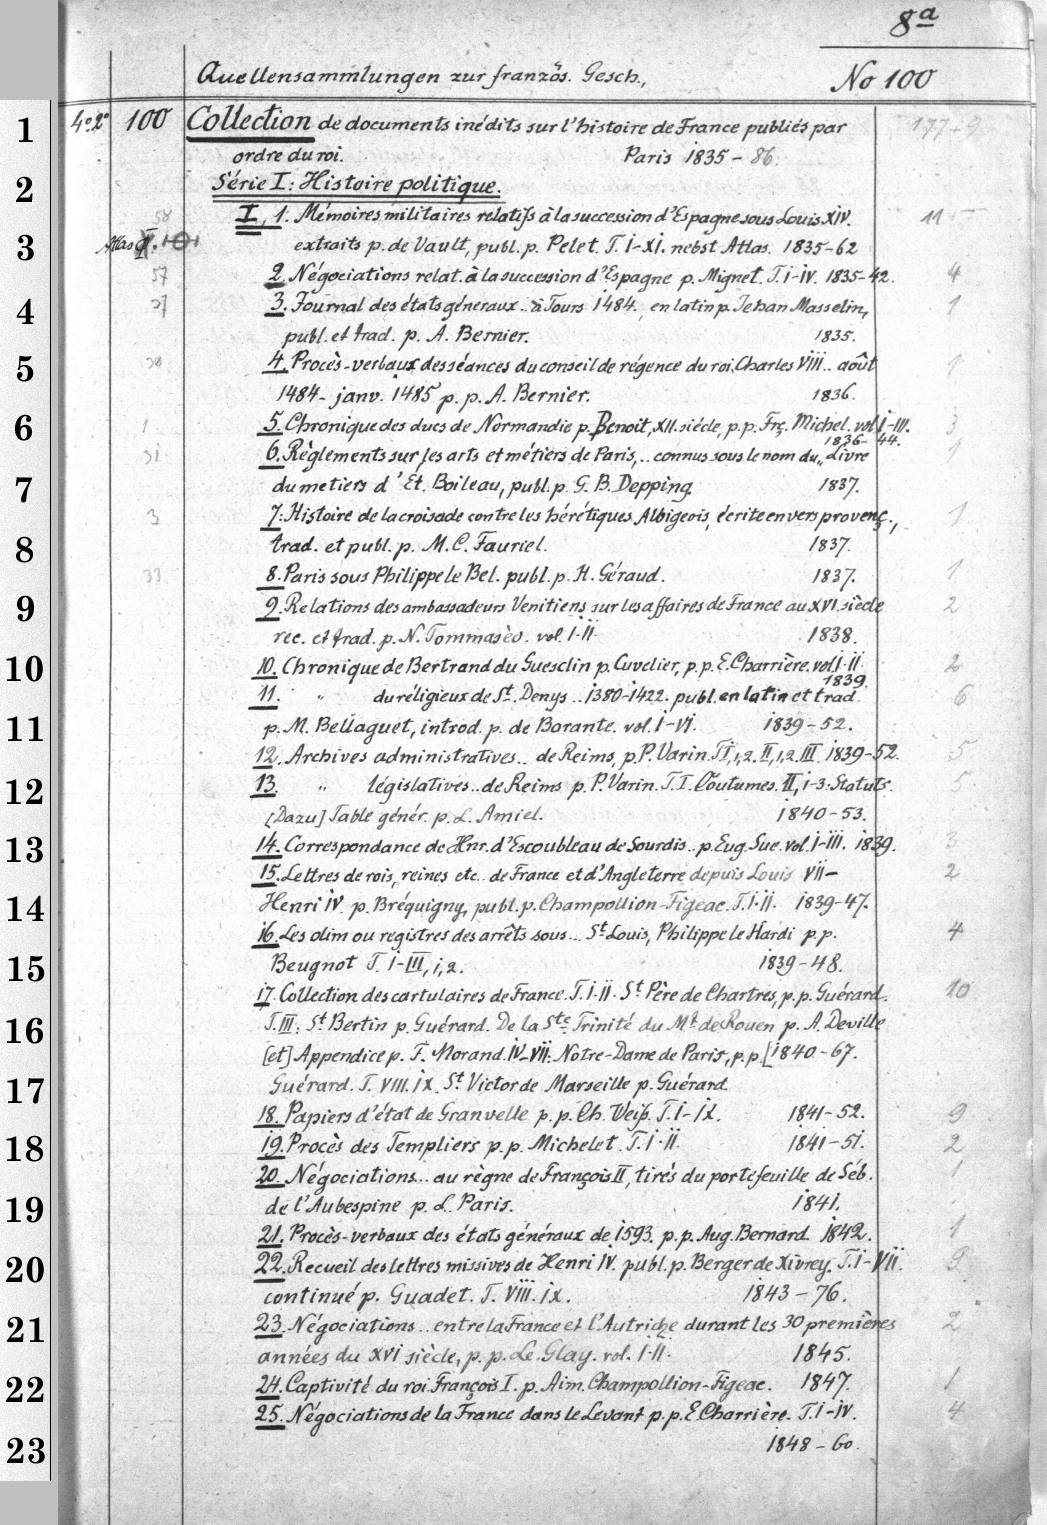 8a
Quellensammlungen zur französ. Gesch., No 100
1 4o.2o 100 Collection de documents inédits sur l'histoire de France publiés par 177+9
ordre du roi. Paris 1835-86.
2 Série I: Histoire politique.
58 I, 1. Mémoires militaires relatifs à la succession d'Espagne sous Louis XIV. 11
3 Atlas extraits p. de Vault, publ. p. Pelet. T. I-XI. nebst Atlas. 1835-62
57 2. Négociations relat. à la succession d'Espagne p. Mignet. T. I-IV. 1835-42. 4
4 27 3. Journal des états géneraux.. à Tours 1484., en latin p. Jehan Masselin, 1
publ. et trad. p. A. Bernier. 1835.
5 4. Procès-verbaux des séances du conseil de régence du roi Charles VIII.. août 1
1484-janv. 1485 p. p. A. Bernier. 1836.
6 1 5. Chronique des ducs de Normandie p. Benoit, XII. siécle, p. p. Frç. Michel. vol I-III. 3
1836-44.
31 6. Règlements sur les arts et métiers de Paris,.. connus sous le nom du „Livre 1
7 du metiers d'Et. Boileau, publ. p. G. B. Depping 1837.
3 7. Histoire de la croisade contre les hérétiques Albigeois, écrite en vers provenç., 1
8 trad. et publ. p. M. C. Fauriel. 1837.
33 8. Paris sous Philippe le Bel. publ. p. H. Géraud. 1837. 1
9 9. Relations des ambassadeurs Venitiens sur les affaires de France au XVI. siècle 2
rec. et trad. p. N. Tommasèo. vol. I-II. 1838.
10 10. Chronique de Bertrand du Guesclin p. Cuvelier, p. p. E. Charrière. vol. I-II 2
1839.
11. " du réligieux de St. Denys.. 1380-1422. publ. en latin et trad. 6
11 p. M. Bellaguet, introd. p. de Barante. vol. I-VI. 1839-52.
12. Archives administratives.. de Reims, p. P. Varin. T I,1,2. II,1,2. III. 1839-52. 5
12 13. " législatives.. de Reims p. P. Varin. T. I. Coutumes. II, 1-3. Statuts. 5
[Dazu] Table génér. p. L. Amiel. 1840-53.
13 14. Correspondance de Hnr. d'Escoubleau de Sourdis.. p. Eug. Sue. vol. I-III. 1839. 3
15. Lettres de rois, reines etc.. de France et d'Angleterre depuis Louis VII- 2
14 Henri IV. p. Bréquigny, publ. p. Champollion-Figeac. T. I-II. 1839-47.
16. Les olim ou registres des arrêts sous... St. Louis, Philippe le Hardi p. p. 4
15 Beugnot T. I-III, 1, 2. 1839-48.
17. Collection des cartulaires de France. T. I-II. St Père de Chartres, p. p. Guérard. 10
16 T. III: St Bertin p. Guérard. De la Ste Trinité du Mt de Rouen p. A. Deville
[et] Appendice p. F. Morand. IV-VII: Notre-Dame de Paris, p. p. [1840-67.
17 Guérard. T. VIII. IX. St Victor de Marseille p. Guérard.
18. Papiers d'état de Granvelle p. p. Ch. Weiß. T. I-IX. 1841-52. 9
18 19. Procès des Templiers p. p. Michelet. T. I-II. 1841-51. 2
20. Négociations... au règne de François II, tirés du portefeuille de Séb. 1
19 de l'Aubespine p. L. Paris. 1841.
21. Procès-verbaux des états généraux de 1593. p. p. Aug. Bernard. 1842. 1
20 22. Recueil des lettres missives de Henri IV. publ. p. Berger de Xivrey. T. I-VII. 9
continué p. Guadet. T. VIII. IX. 1843-76.
21 23. Négociations.. entre la France et l'Autriche durant les 30 premières 2
années du XVI siècle, p. p. Le Glay. vol. I-II. 1845.
22 24. Captivité du roi François I. p. Aim. Champollion-Figeac. 1847. 1
25. Négociations de la France dans le Levant p. p. E. Charrière. T. I-IV. 4
23 1848-60.